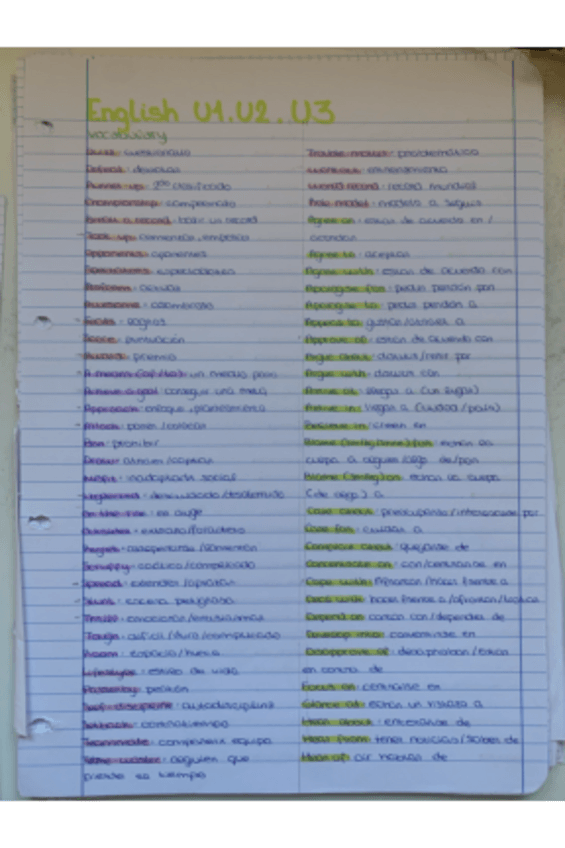 English U1.U2.U3
vocabulary
Quiz: cuestionario
Defeat: derrotar
Runner up: 2º clasificado
Championship: campeonato
Break a record: batir un record
Took up: comenzar, empezar
Opponents: oponentes
Spectators: espectadores
Perform: actuar
Awesome: asombroso
Goals:
Score: puntuación
Award: premio
A means (of/to): un medio para
Achieve a goal: conseguir una meta
Approach: enfoque, planteamiento
Attach: poner/colocar
Ban: prohibir
Draw: atraer/captar
Misfit: inadaptado social
Neglected: descuidado/desatendido
On the rise: en auge
Outsider: extraño/forastero
Regret: arrepentirse/lamentar
Scruffy: caótico/complicado
Spread: extender
Stunt: escena peligrosa
Thrills: emociones/entusiasmos
Tough: difícil/duro/complicado
Room: espacio/hueco
Lifestyle: estilo de vida
Self-discipline: autodisciplina
Setback: contratiempo
Teammate: compañera equipo
Time-waster: alguien que
pierde el tiempo
Trouble maker: problemático
Workout: entrenamiento
World record: récord mundial
Role model: modelo a seguir
Agree on: estar de acuerdo en /
acordar
Agree to: aceptar
Agree with: estar de acuerdo con
Apologise for: pedir perdón por
Apologise to: pedir perdón a
Appeal to: gustar/atraer a
Approve of: estar de acuerdo con
Argue about: discutir/reñir por
Argue with: discutir con
Arrive at: llegar a (un lugar)
Arrive in: llegar a (ciudad/país)
Believe in: creer en
Blame (smth/smne) for: echar la
culpa a alguien/algo de/por
Blame (smth) on: echar la culpa
(de algo) a
Care about: preocuparse/interesarse por
Care for: cuidar a
Complain about: quejarse de
Concentrate on: concentrarse en
Cope with: afrontar/hacer frente a
Deal with: hacer frente a /afrontar/
Depend on: contar con/depender de
Develop into: convertirse en
Disapprove of: desaprobar/estar
en contra de
Focus on: centrarse en
Glance at: echar un vistazo a
Hear about: enterarse de
Hear from: tener noticias/saber de
Hear of: oír hablar de